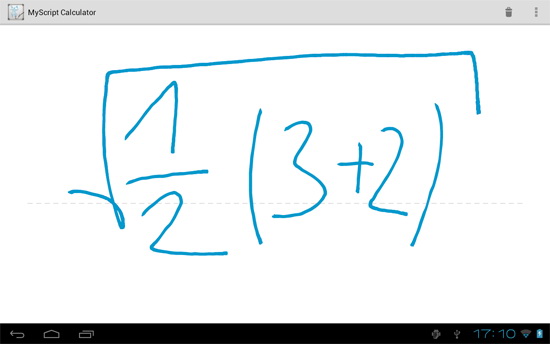 MyScript Calculator
√(1/2 (3+2))
17:10